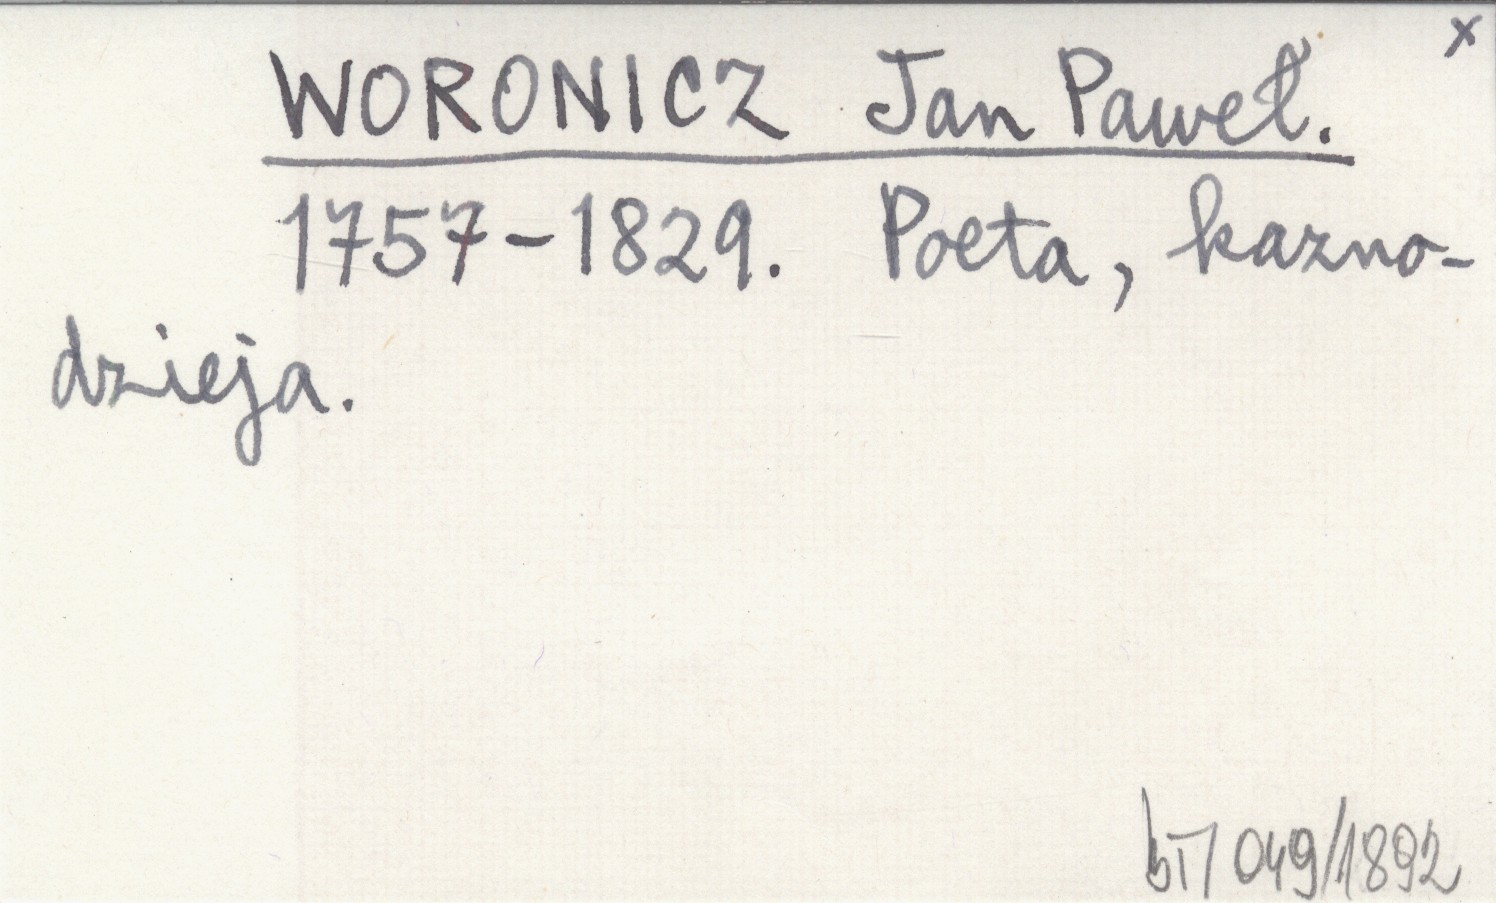 x
WORONICZ Jan Paweł.
1757-1829. Poeta, kazno-
dzieja.
bT/049/1892